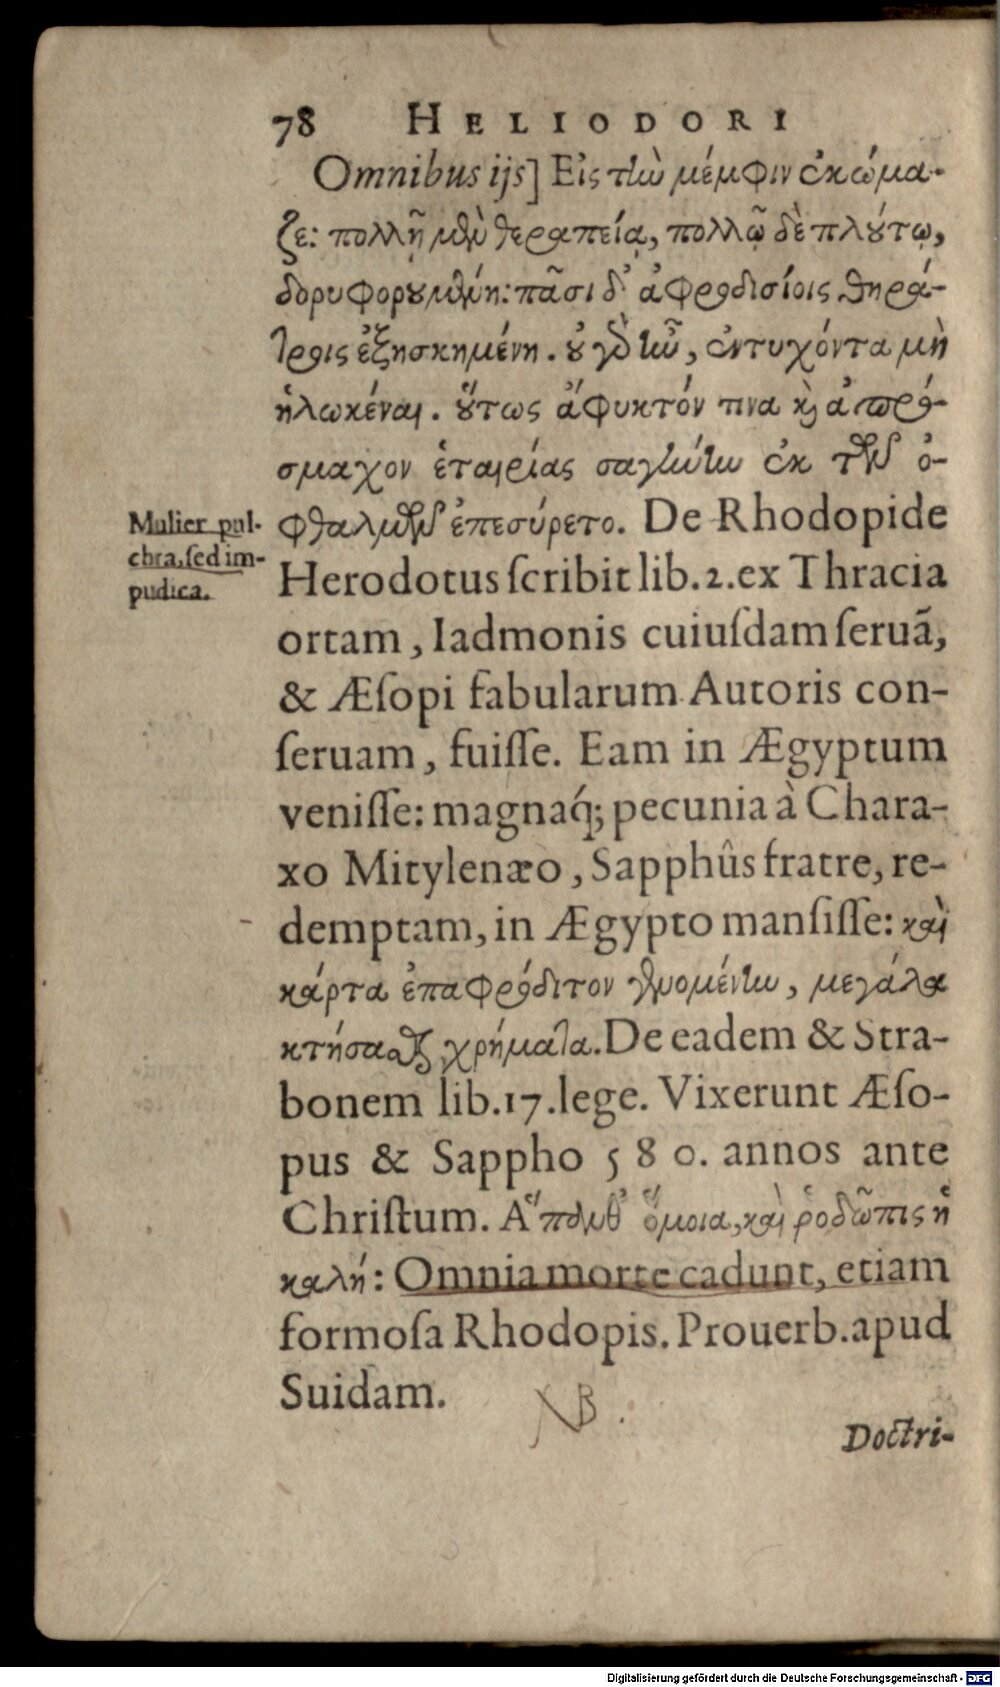 78 HELIODORI
Omnibus ijs] Εἰς τὴν μέμφιν ἐκώμα-
ζε: πολλῇ μὲν θεραπείᾳ, πολλῷ δὲ πλούτῳ,
δορυφορουμένη: πᾶσι δ' ἀφροδισίοις θηρά-
τροις ἐξησκημένη. οὐ γὰρ ἦν, ἐντυχόντα μὴ
ἡλωκέναι. οὕτως ἄφυκτόν τινα καὶ ἀπρό-
σμαχον ἑταιρίας σαγήνην ἐκ τῶν ὀ-
φθαλμῶν ἐπεσύρετο. De Rhodopide
Mulier pul-
chra, sed im-
pudica.
Herodotus ſcribit lib.2.ex Thracia
ortam, Iadmonis cuiuſdam ſeruã,
& Æſopi fabularum Autoris con-
ſeruam, fuiſſe. Eam in Ægyptum
veniſſe: magnaq́; pecunia à Chara-
xo Mitylenæo, Sapphûs fratre, re-
demptam, in Ægypto manſiſſe: καὶ
κάρτα ἐπαφρόδιτον γενομένην, μεγάλα
κτήσασθαι χρήματα. De eadem & Stra-
bonem lib.17.lege. Vixerunt Æſo-
pus & Sappho 580. annos ante
Chriſtum. Ἅπανθ' ὅμοια, καὶ ῥοδῶπις ἡ
καλή: Omnia morte cadunt, etiam
formoſa Rhodopis. Prouerb. apud
Suidam.
NB.
Doctri-
Digitalisierung gefördert durch die Deutsche Forschungsgemeinschaft - DFG